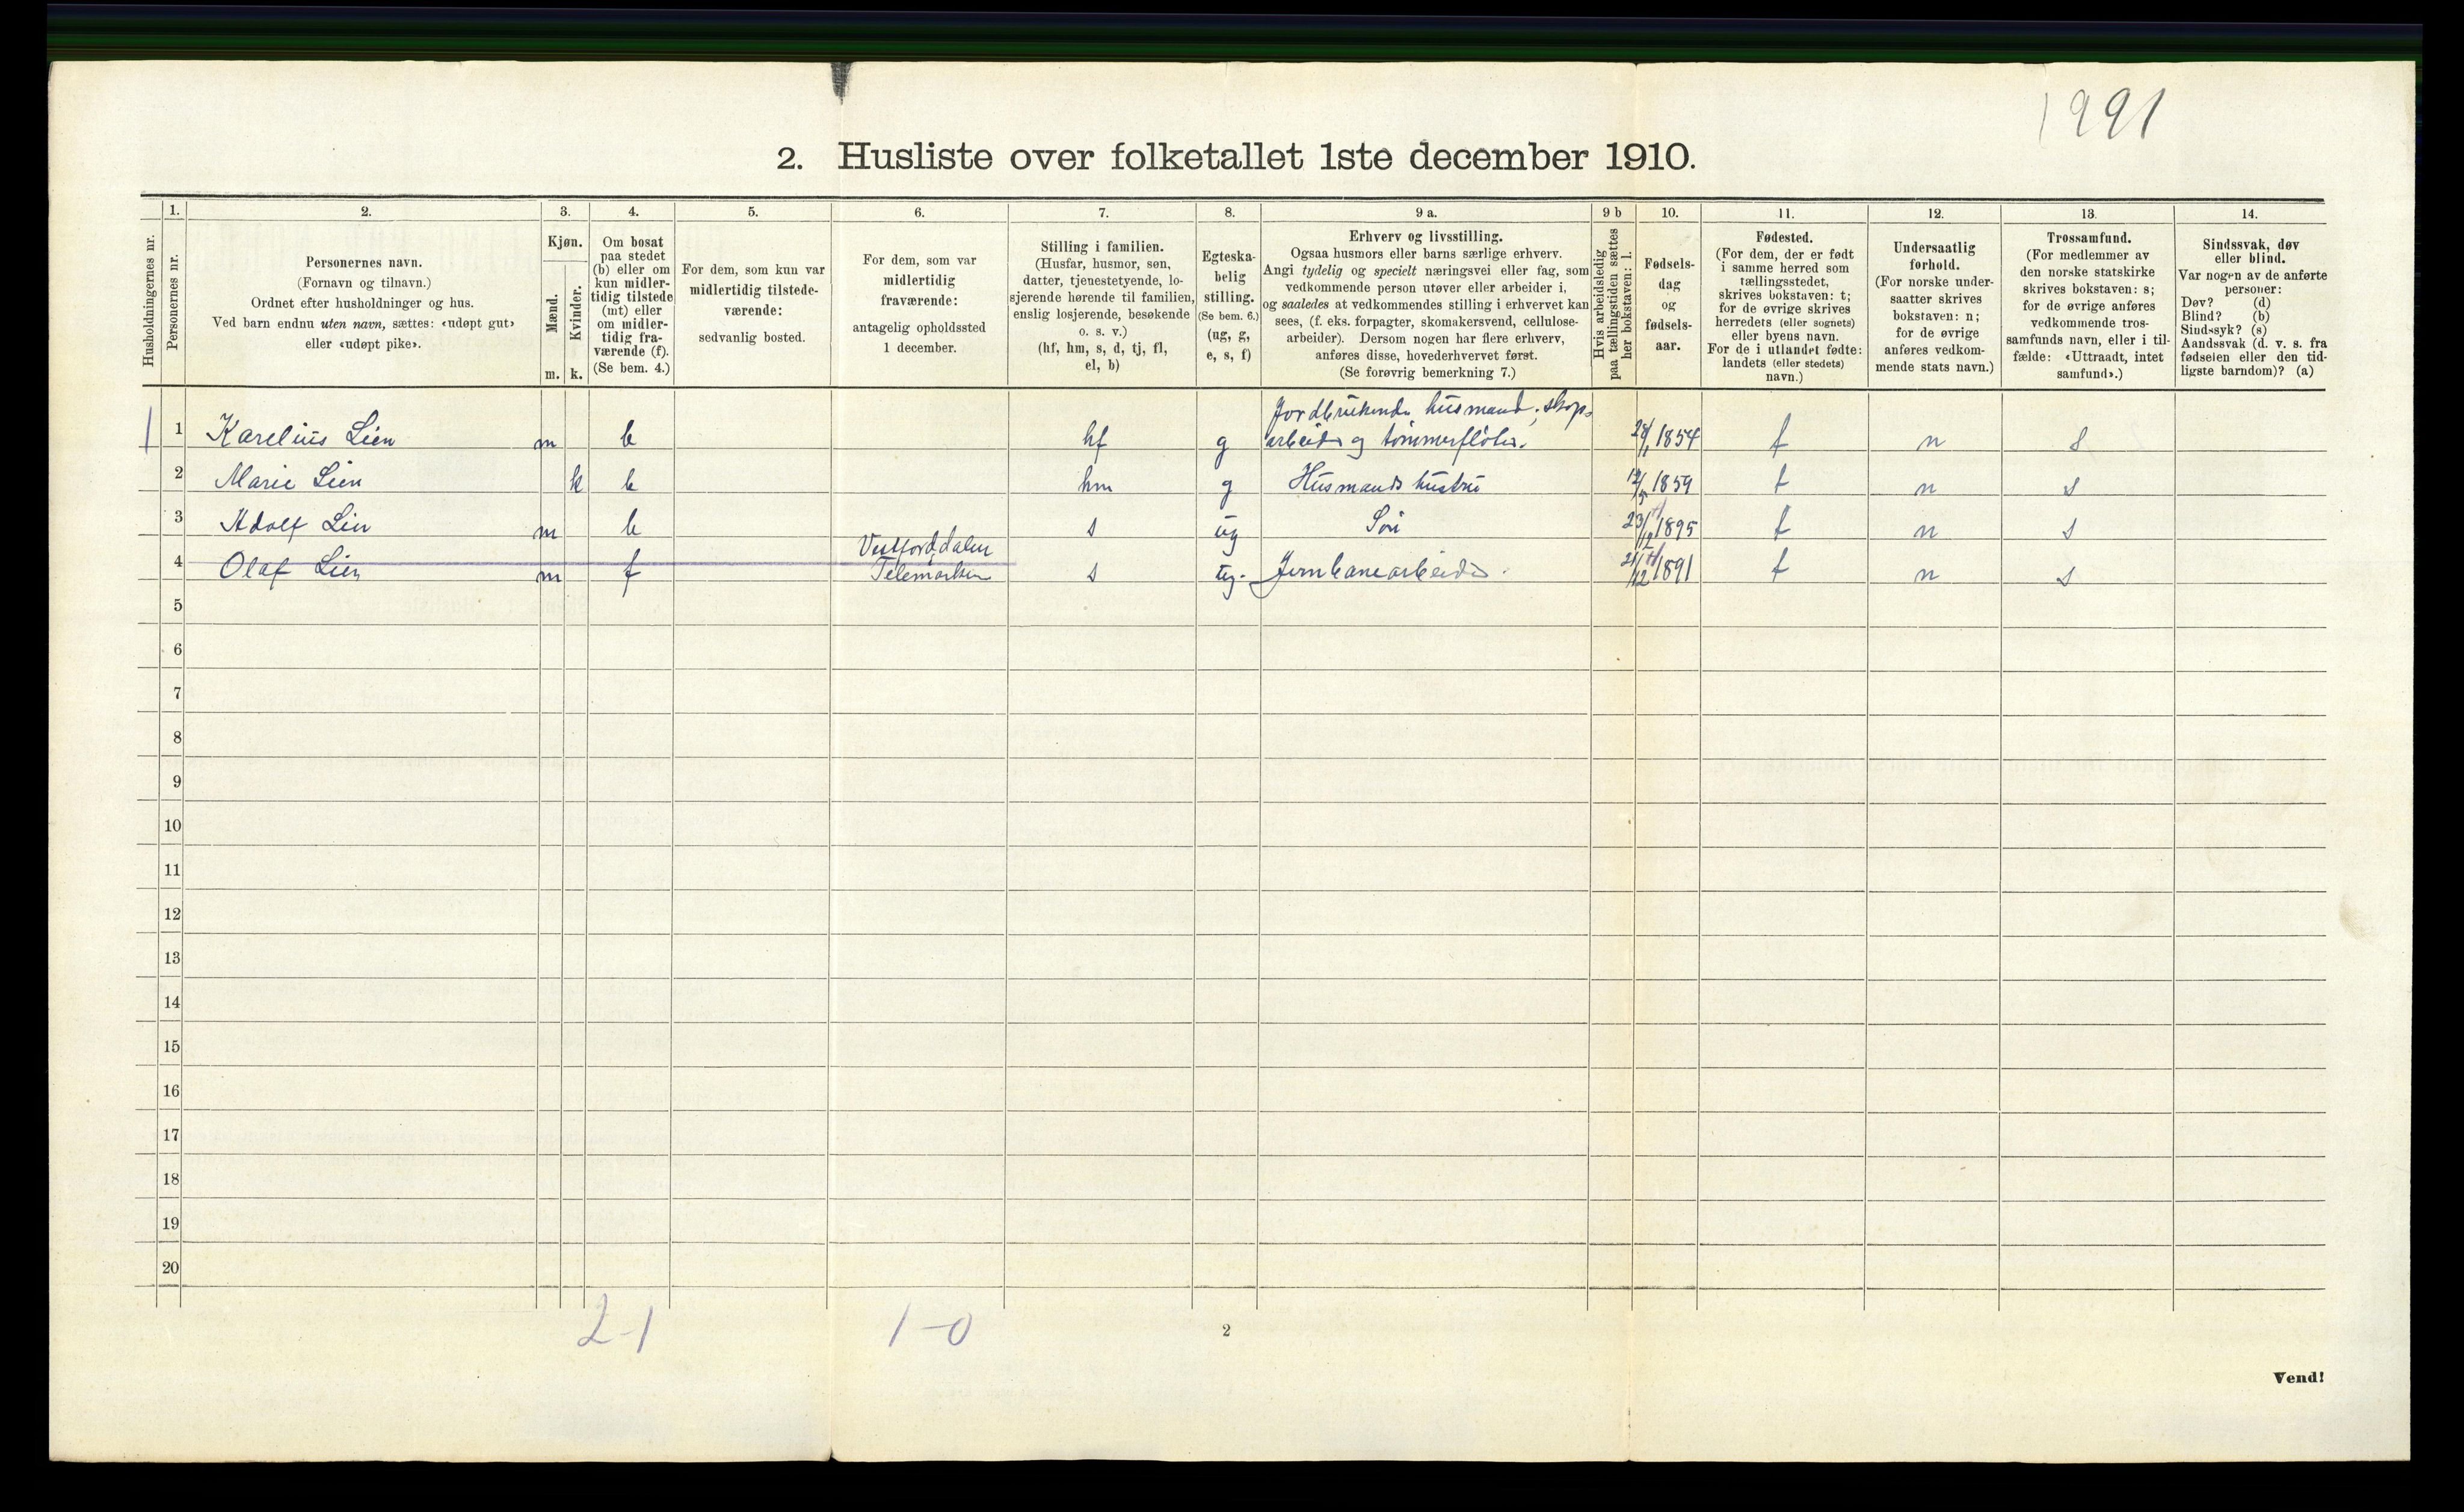 1991
2. Husliste over folketallet 1ste december 1910.
Husholdningernes nr.
1.
Personernes nr.
2.
Personernes navn.
(Fornavn og tilnavn.)
Ordnet efter husholdninger og hus.
Ved barn endnu uten navn, sættes: «udøpt gut»
eller «udøpt pike».
3.
Kjøn.
Mænd.
Kvinder.
m. k.
4.
Om bosat
paa stedet
(b) eller om
kun midler-
tidig tilstede
(mt) eller
om midler-
tidig fra-
værende (f).
(Se bem. 4.)
5.
For dem, som kun var
midlertidig tilstede-
værende:
sedvanlig bosted.
6.
For dem, som var
midlertidig
fraværende:
antagelig opholdssted
1 december.
7.
Stilling i familien.
(Husfar, husmor, søn,
datter, tjenestetyende, lo-
sjerende hørende til familien,
enslig losjerende, besøkende
o. s. v.)
(hf, hm, s, d, tj, fl,
el, b)
8.
Egteska-
belig
stilling.
(Se bem. 6.)
(ug, g,
e, s, f)
9 a.
Erhverv og livsstilling.
Ogsaa husmors eller barns særlige erhverv.
Angi tydelig og specielt næringsvei eller fag, som
vedkommende person utøver eller arbeider i,
og saaledes at vedkommendes stilling i erhvervet kan
sees, (f. eks. forpagter, skomakersvend, cellulose-
arbeider). Dersom nogen har flere erhverv,
anføres disse, hovederhvervet først.
(Se forøvrig bemerkning 7.)
9 b
Hvis arbeidsledig
paa tællingstiden sættes
her bokstaven: l.
10.
Fødsels-
dag
og
fødsels-
aar.
11.
Fødested.
(For dem, der er født
i samme herred som
tællingsstedet,
skrives bokstaven: t;
for de øvrige skrives
herredets (eller sognets)
eller byens navn.
For de i utlandet fødte:
landets (eller stedets)
navn.)
12.
Undersaatlig
forhold.
(For norske under-
saatter skrives
bokstaven: n;
for de øvrige
anføres vedkom-
mende stats navn.)
13.
Trossamfund.
(For medlemmer av
den norske statskirke
skrives bokstaven: s;
for de øvrige anføres
vedkommende tros-
samfunds navn, eller i til-
fælde: «Uttraadt, intet
samfund».)
14.
Sindssvak, døv
eller blind.
Var nogen av de anførte
personer:
Døv? (d)
Blind? (b)
Sindssyk? (s)
Aandssvak (d. v. s. fra
fødselen eller den tid-
ligste barndom)? (a)
Jordbrukende husmand, skogs
1 1 Karelius Lien m b hf g arbeider og tømmerfløter. 1854 t n s
2 Marie Lien k b hm g Husmands hustru 1859 t n s
3 Adolf Lien m b s ug Søn 23/12 1895 t n s
Vestfjorddalen
4 Olaf Lien m f Telemarken s ug. Jernbanearbeider. 21/12 1891 t n s
5
6
7
8
9
10
11
12
13
14
15
16
17
18
19
20
2-1 1-0
2
Vend!